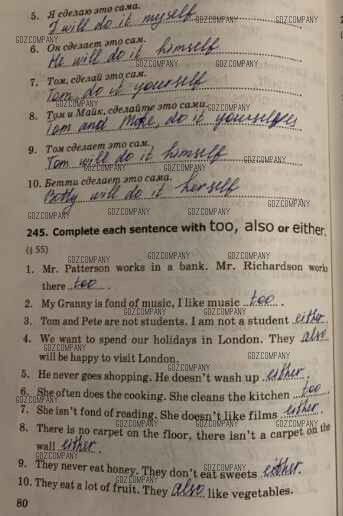 5. Я сделаю это сама.
I will do it myself
6. Он сделает это сам.
He will do it himself
7. Том, сделай это сам.
Tom, do it yourself
8. Том и Майк, сделайте это сами.
Tom and Mike, do it yourselves
9. Том сделает это сам.
Tom will do it himself
10. Бетти сделает это сама.
Betty will do it herself
245. Complete each sentence with too, also or either.
(§ 55)
1. Mr. Patterson works in a bank. Mr. Richardson works
there too.
2. My Granny is fond of music, I like music too.
3. Tom and Pete are not students. I am not a student either.
4. We want to spend our holidays in London. They also
will be happy to visit London.
5. He never goes shopping. He doesn't wash up either.
6. She often does the cooking. She cleans the kitchen too.
7. She isn't fond of reading. She doesn't like films either.
8. There is no carpet on the floor, there isn't a carpet on the
wall either.
9. They never eat honey. They don't eat sweets either.
10. They eat a lot of fruit. They also like vegetables.
80
GDZCOMPANY